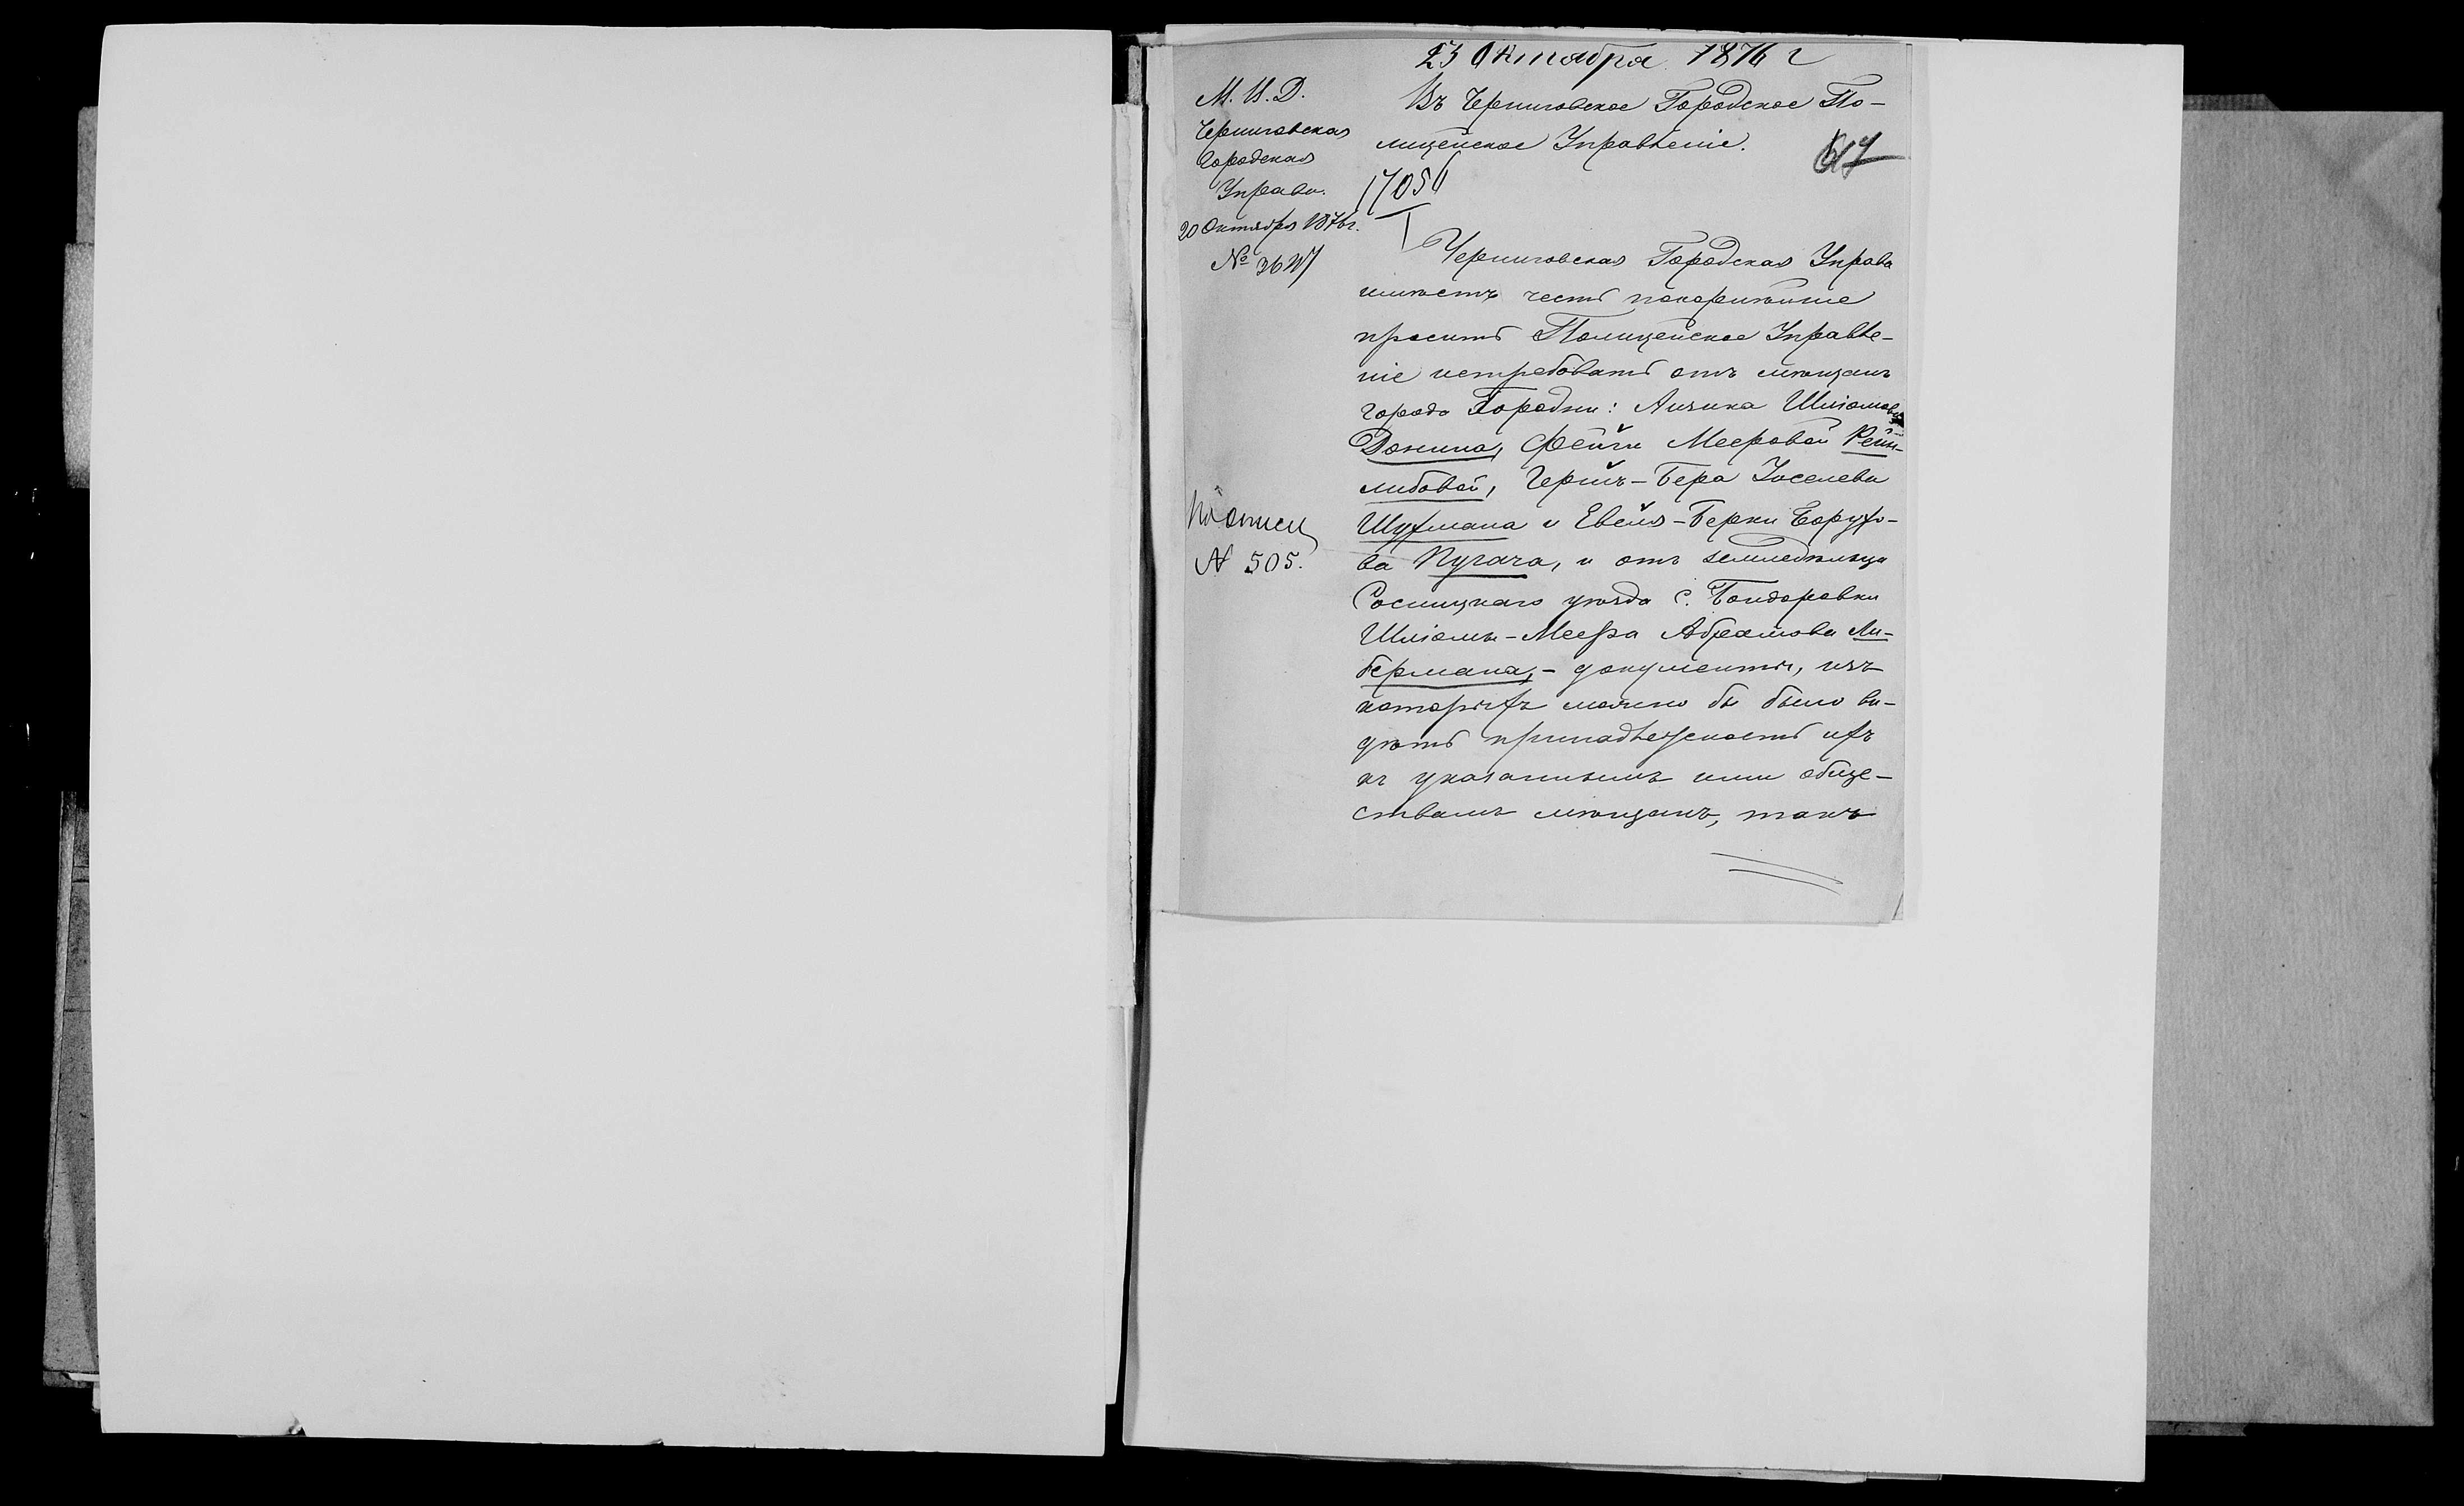 23 Октября 1876 г
М. В. Д.
Черниговская
Городская
Управа.
20 Октября 1876 г.
№ 3627
Въ Черниговское Городское По-
лицейское Управленіе.
617
17056
Черниговская Городская Управа
имѣетъ честь покорнѣйше
просить Полицейское Управле-
ніе истребовать отъ мѣщанъ
города Городни: Аизика Шліомова
Донина, Фейги Мееровой Рейн-
либовой, Гершъ-Бера Іоселева
Шухмана и Евеля-Берки Борухо-
ва Пугача, и отъ земледѣльца
Сосницкаго уѣзда с. Бондаровки
Шліомы-Меера Абрамова Ли-
бермана, - документы, изъ
которыхъ можно бы было ви-
дѣть принадлежность ихъ
къ указаннымъ ими обще-
ствамъ мѣщанъ, такъ
По описи
№ 505.